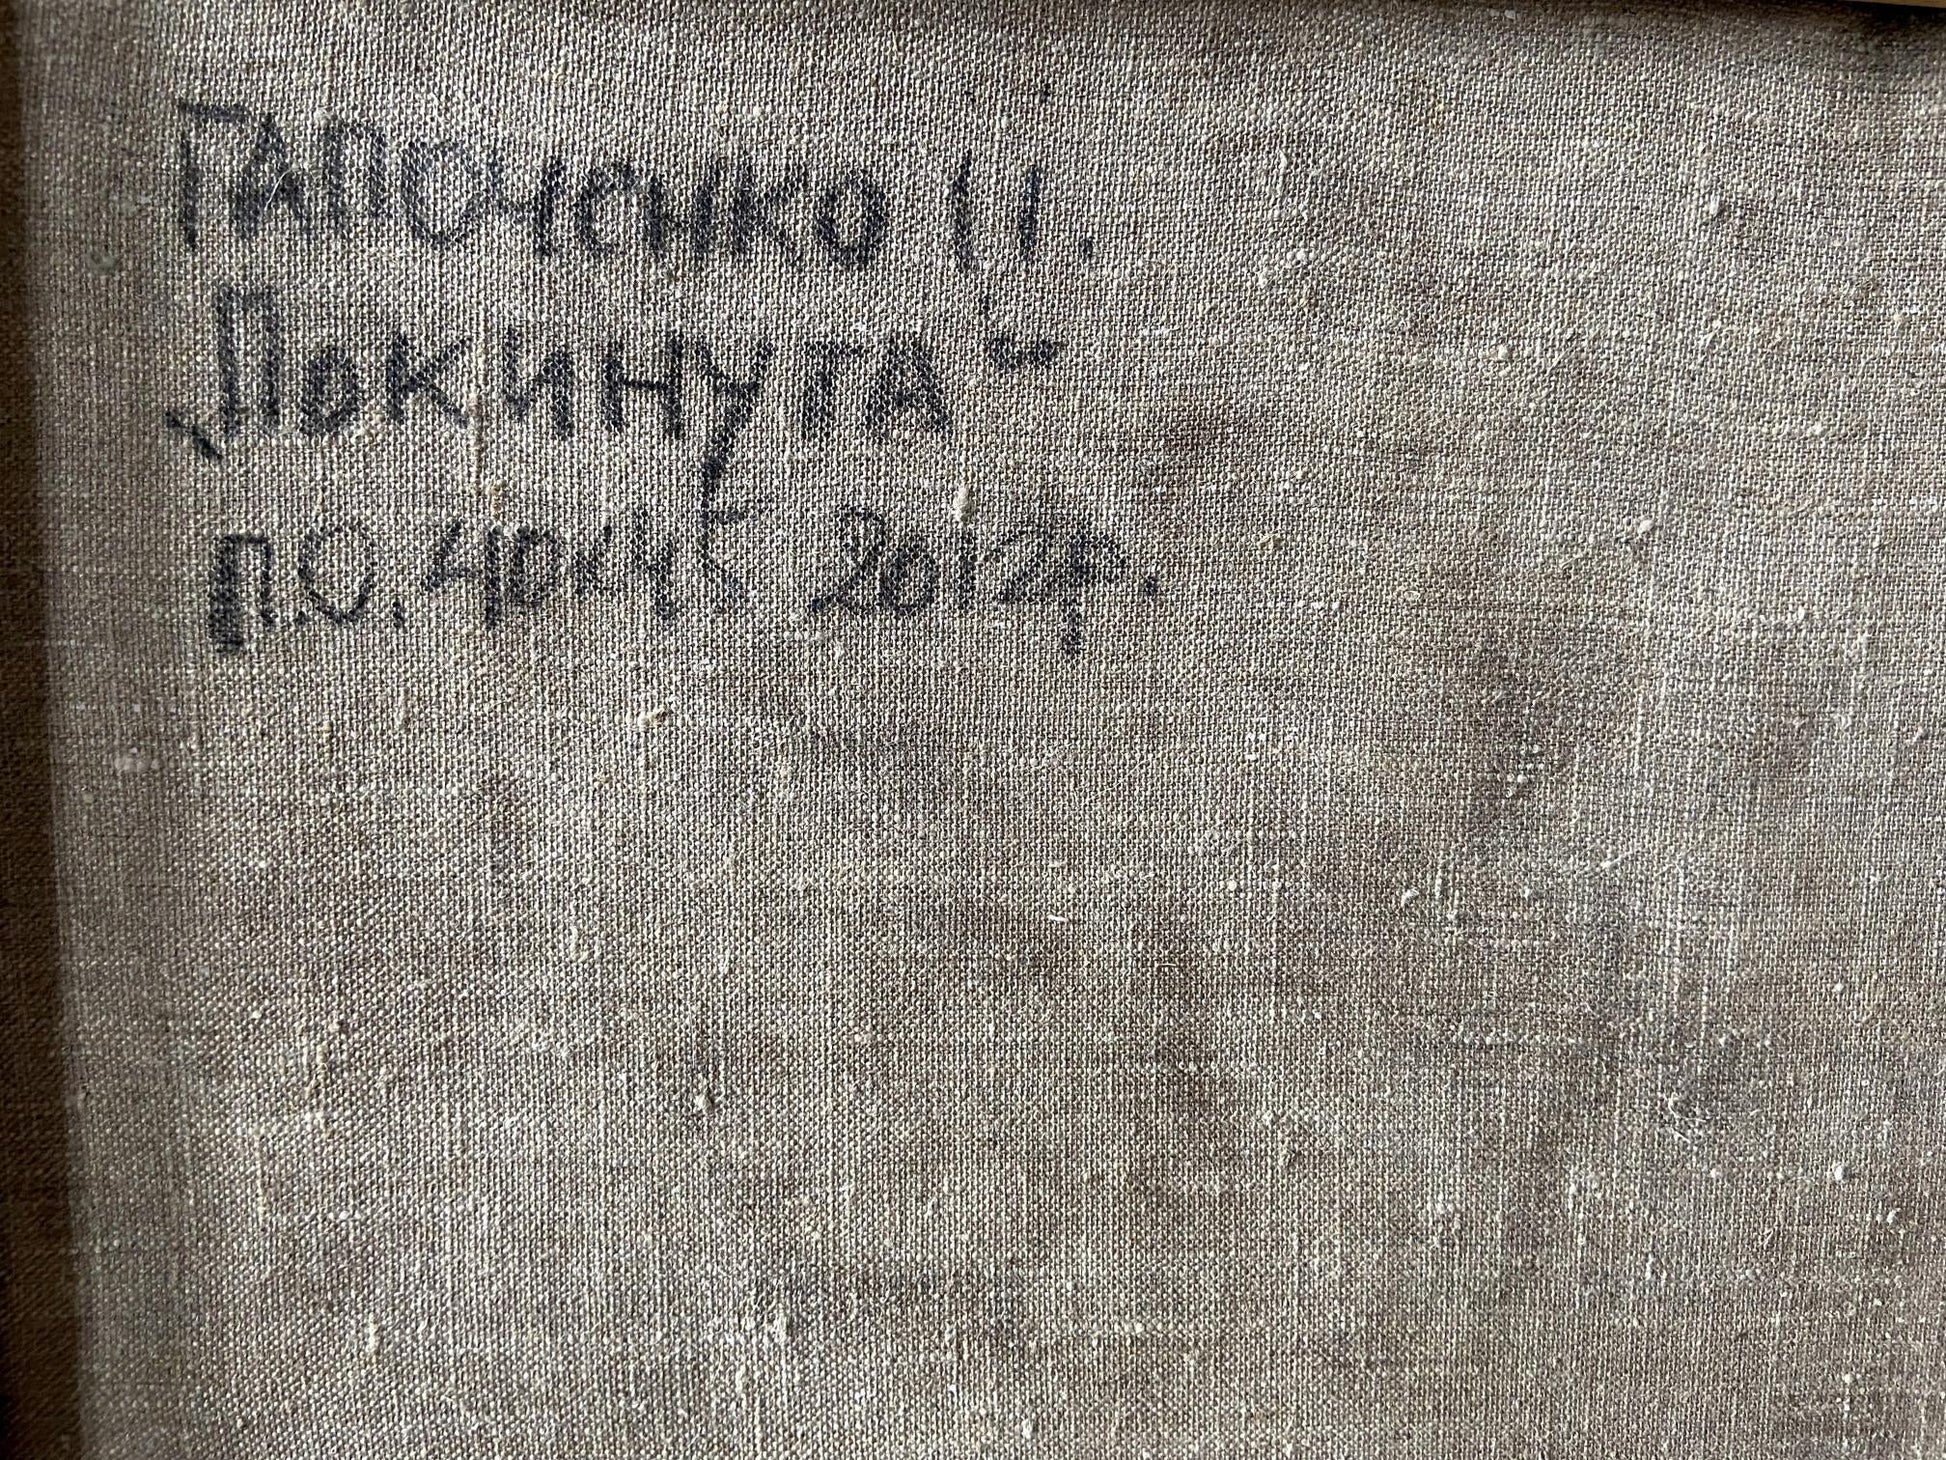 ГАПОЧЕНКО І.
„ПОКИНУТА“
П.О. 40х45 2012р.